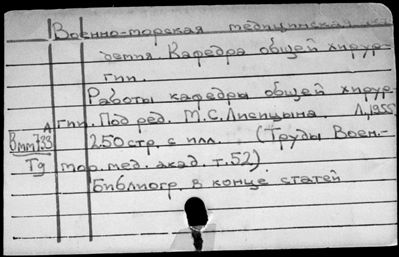 Военно-морская медицинская ака
демия. Кафедра общей хирур-
гии.
Работы кафедры общей хирур-
А гии. Под ред. М.С. Лисицына. Л., 1955
Вмм733 250 стр. с илл. (Труды Воен.-
Тд мор. мед. акад. т. 52)
Библиогр. в конце статей